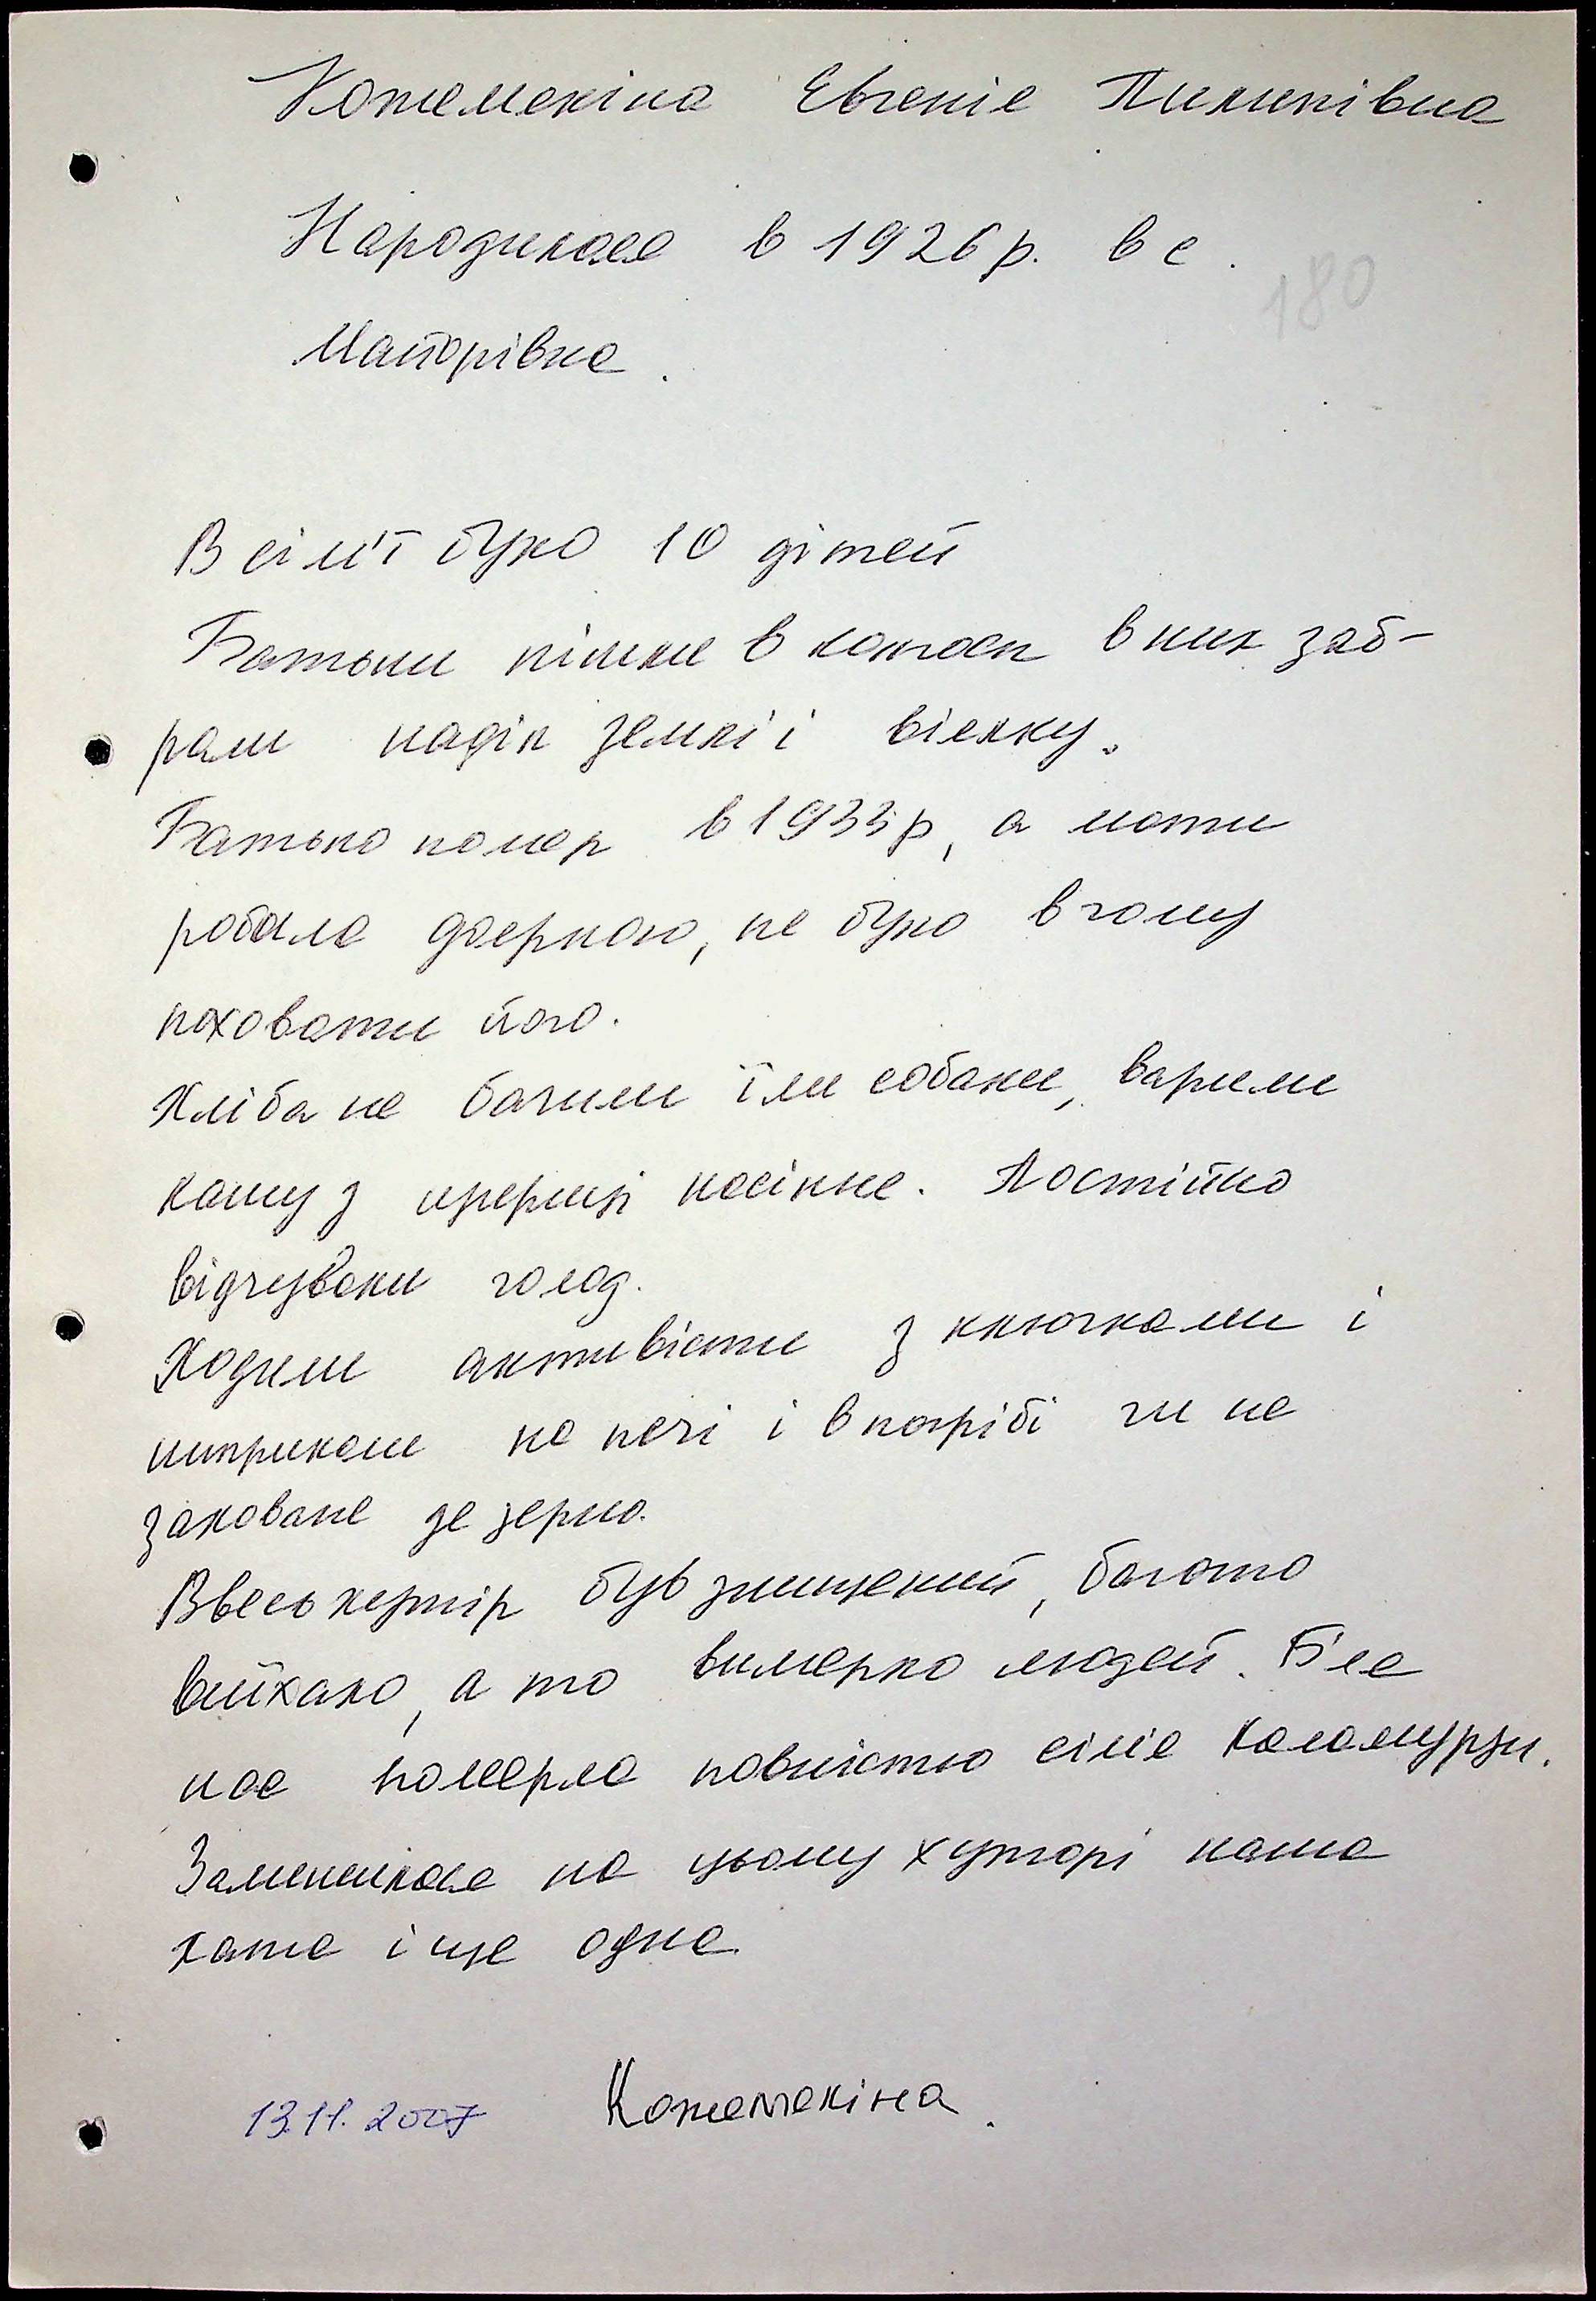 Кожемякіна Євгенія Пилипівна
Народилася в 1926 р. в с.
180
Майорівка.
В сім'ї було 10 дітей
Батьки пішли в колгосп в них заб-
рали наділ землі і вієлку.
Батько помер в 1933 р, а мати
робила дояркою, не було в чому
поховати його.
Хліба не бачили їли собаки, варили
кашу з щерицi насіння. Постійно
відчували голод.
Ходили активісти з ключками і
штрикали на печі і в погрібі чи не
заховане де зерно.
Ввесь хутір був знищений, багато
виїхало, а то вимерло людей. Біля
нас померла повністю сім'я Каламурзи.
Залишилася на цьому хуторі наша
хата і ще одна.
13.11.2007 Кожемякіна.